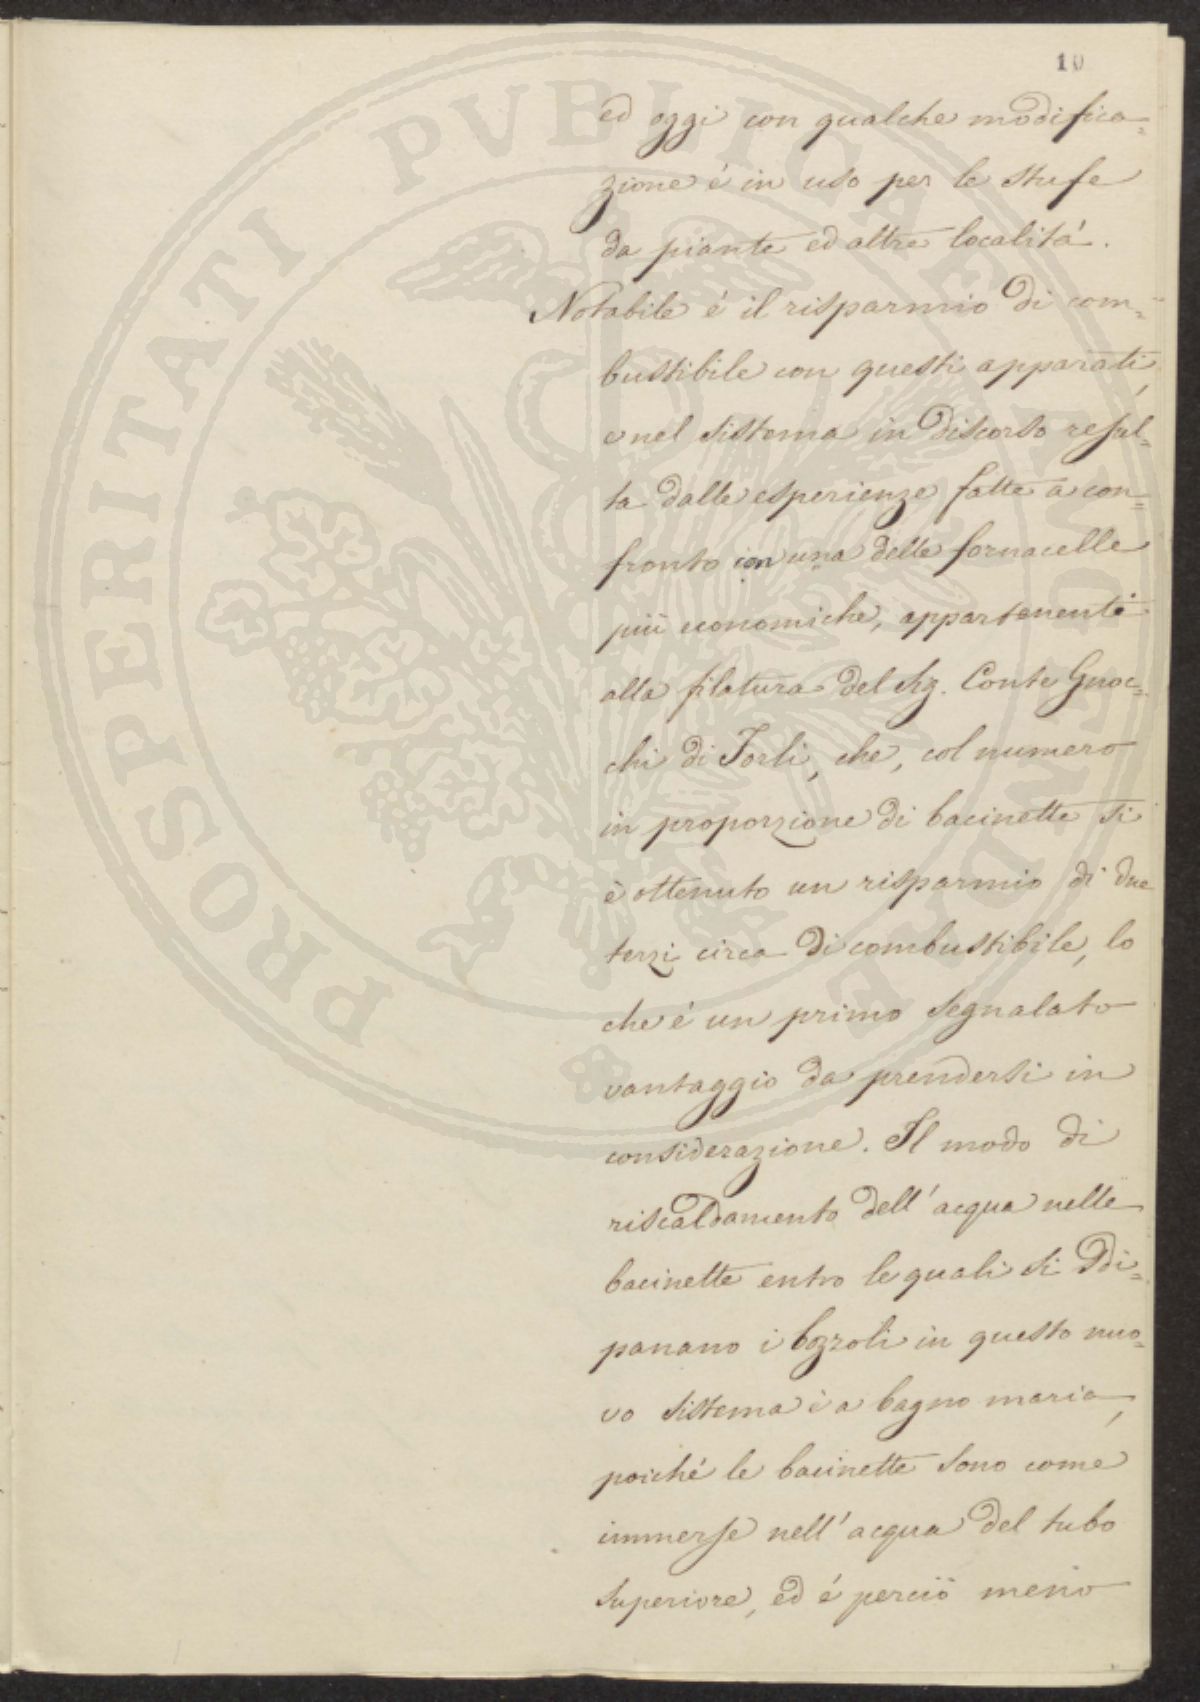 10
ed oggi con qualche modifica=
zione é in uso per le stufe
da piante ed altre localitá.
Notabile é il risparmio di com=
bustibile con questi apparati,
e nel sistema in discorso resul=
ta dalle esperienze fatte a con=
fronto con una delle fornacelle
più economiche, appartenente
alla filatura del Sig. Conte Gnoc=
chi di Forlì, che, col numero
in proporzione di bacinette si
è ottenuto un risparmio di due
terzi circa di combustibile, lo
che é un primo segnalato
vantaggio da prendersi in
considerazione. Il modo di
riscaldamento dell'acqua nelle
bacinette entro le quali si di=
panano i bozzoli in questo nuo=
vo sistema è a bagno maria,
poiché le bacinette sono come
immerse nell'acqua del tubo
superiore, ed é perciò meno
PROSPERITATI PVBLICAE AVGENDAE